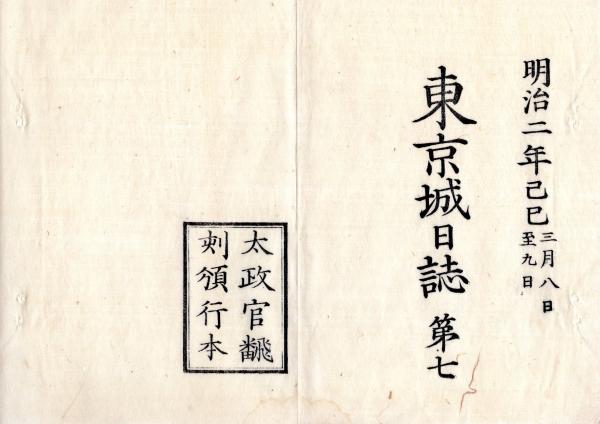 明治二年己巳三月八日
至九日
東京城日誌 第七
太政官飜
刻頒行本